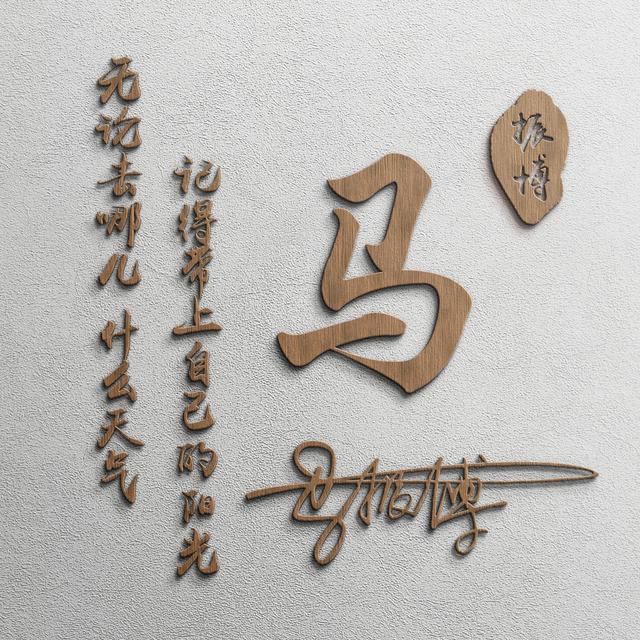 无论去哪儿 什么天气
记得带上自己的阳光
马
振博
马振博